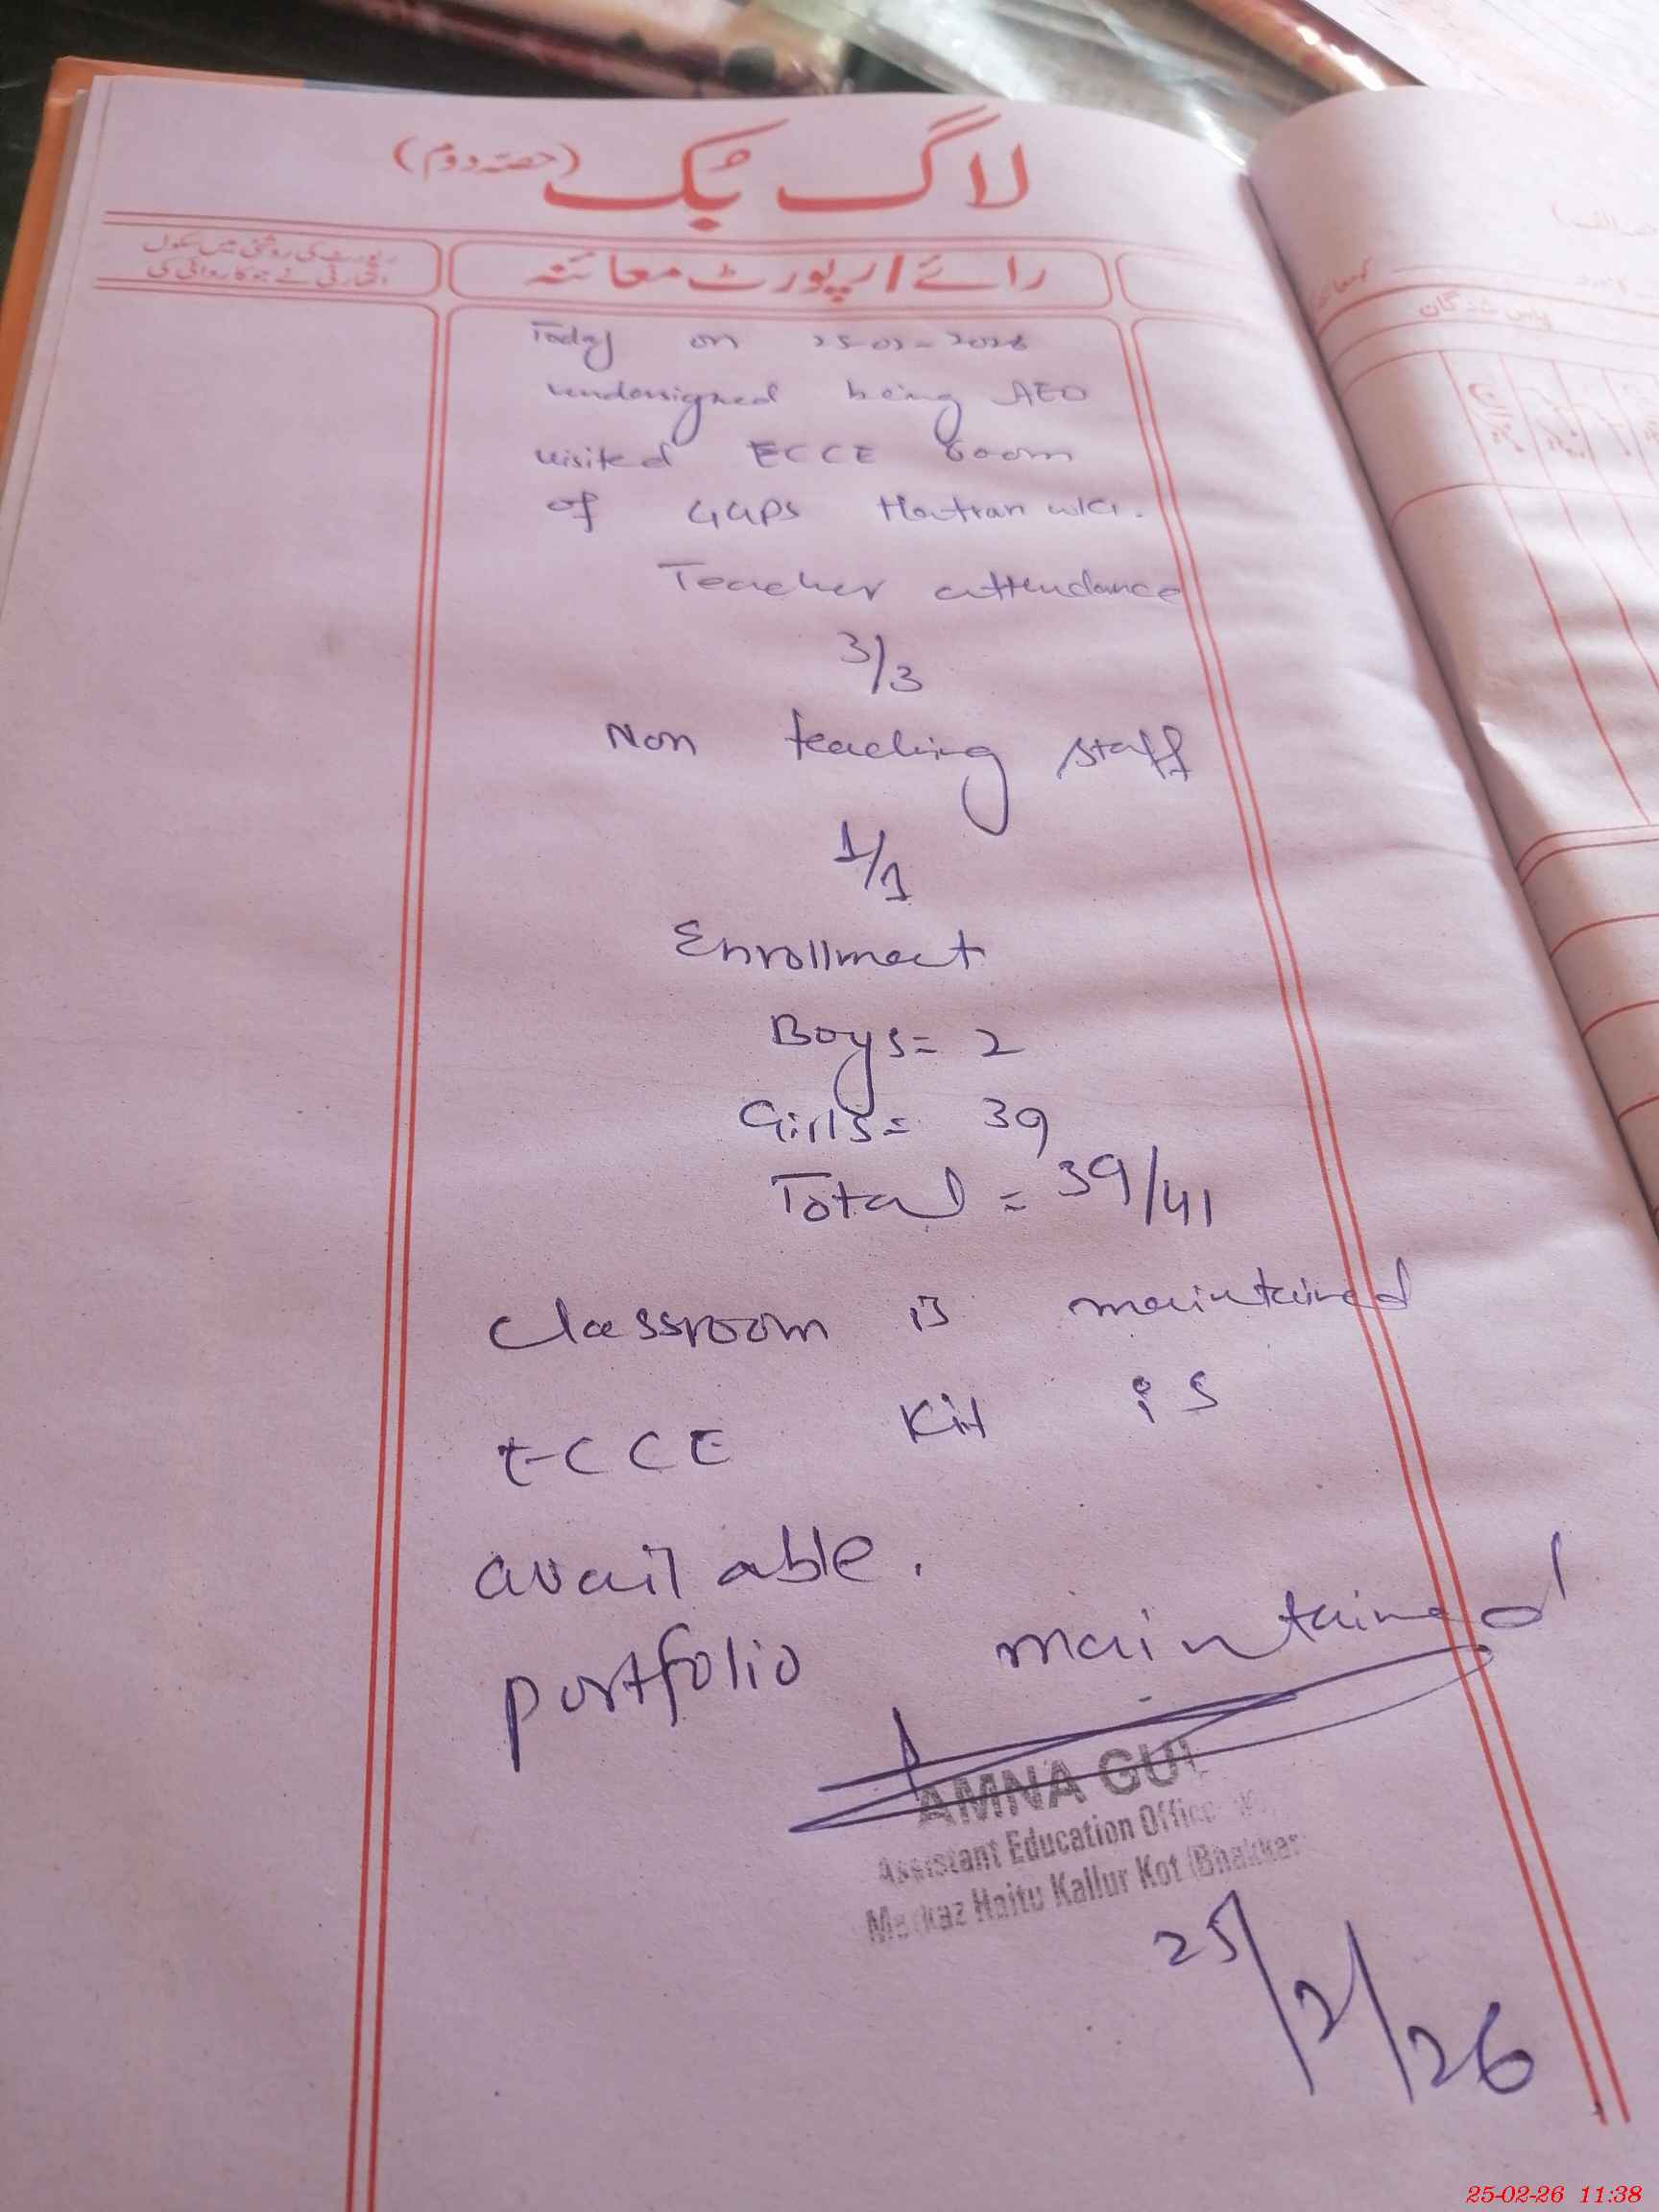 لاگ بُک (حصّہ دوم)
رائے / رپورٹ معائنہ
رپورٹ کی روشنی میں سکول
اتھارٹی نے جو کاروائی کی
Today on 25-02-2026
undersigned being AEO
visited ECCE room
of GGPS
Teacher attendance
3/3
Non teaching staff
1/1
Enrollment
Boys= 2
Girls= 39
Total = 39/41
classroom is maintained
ECCE Kit is
available.
portfolio maintained
AMNA GUL
Assistant Education Officer
Markaz Haitu Kallur Kot (Bhakkar
25/2/26
پاس شدگان
25-02-26 11:38